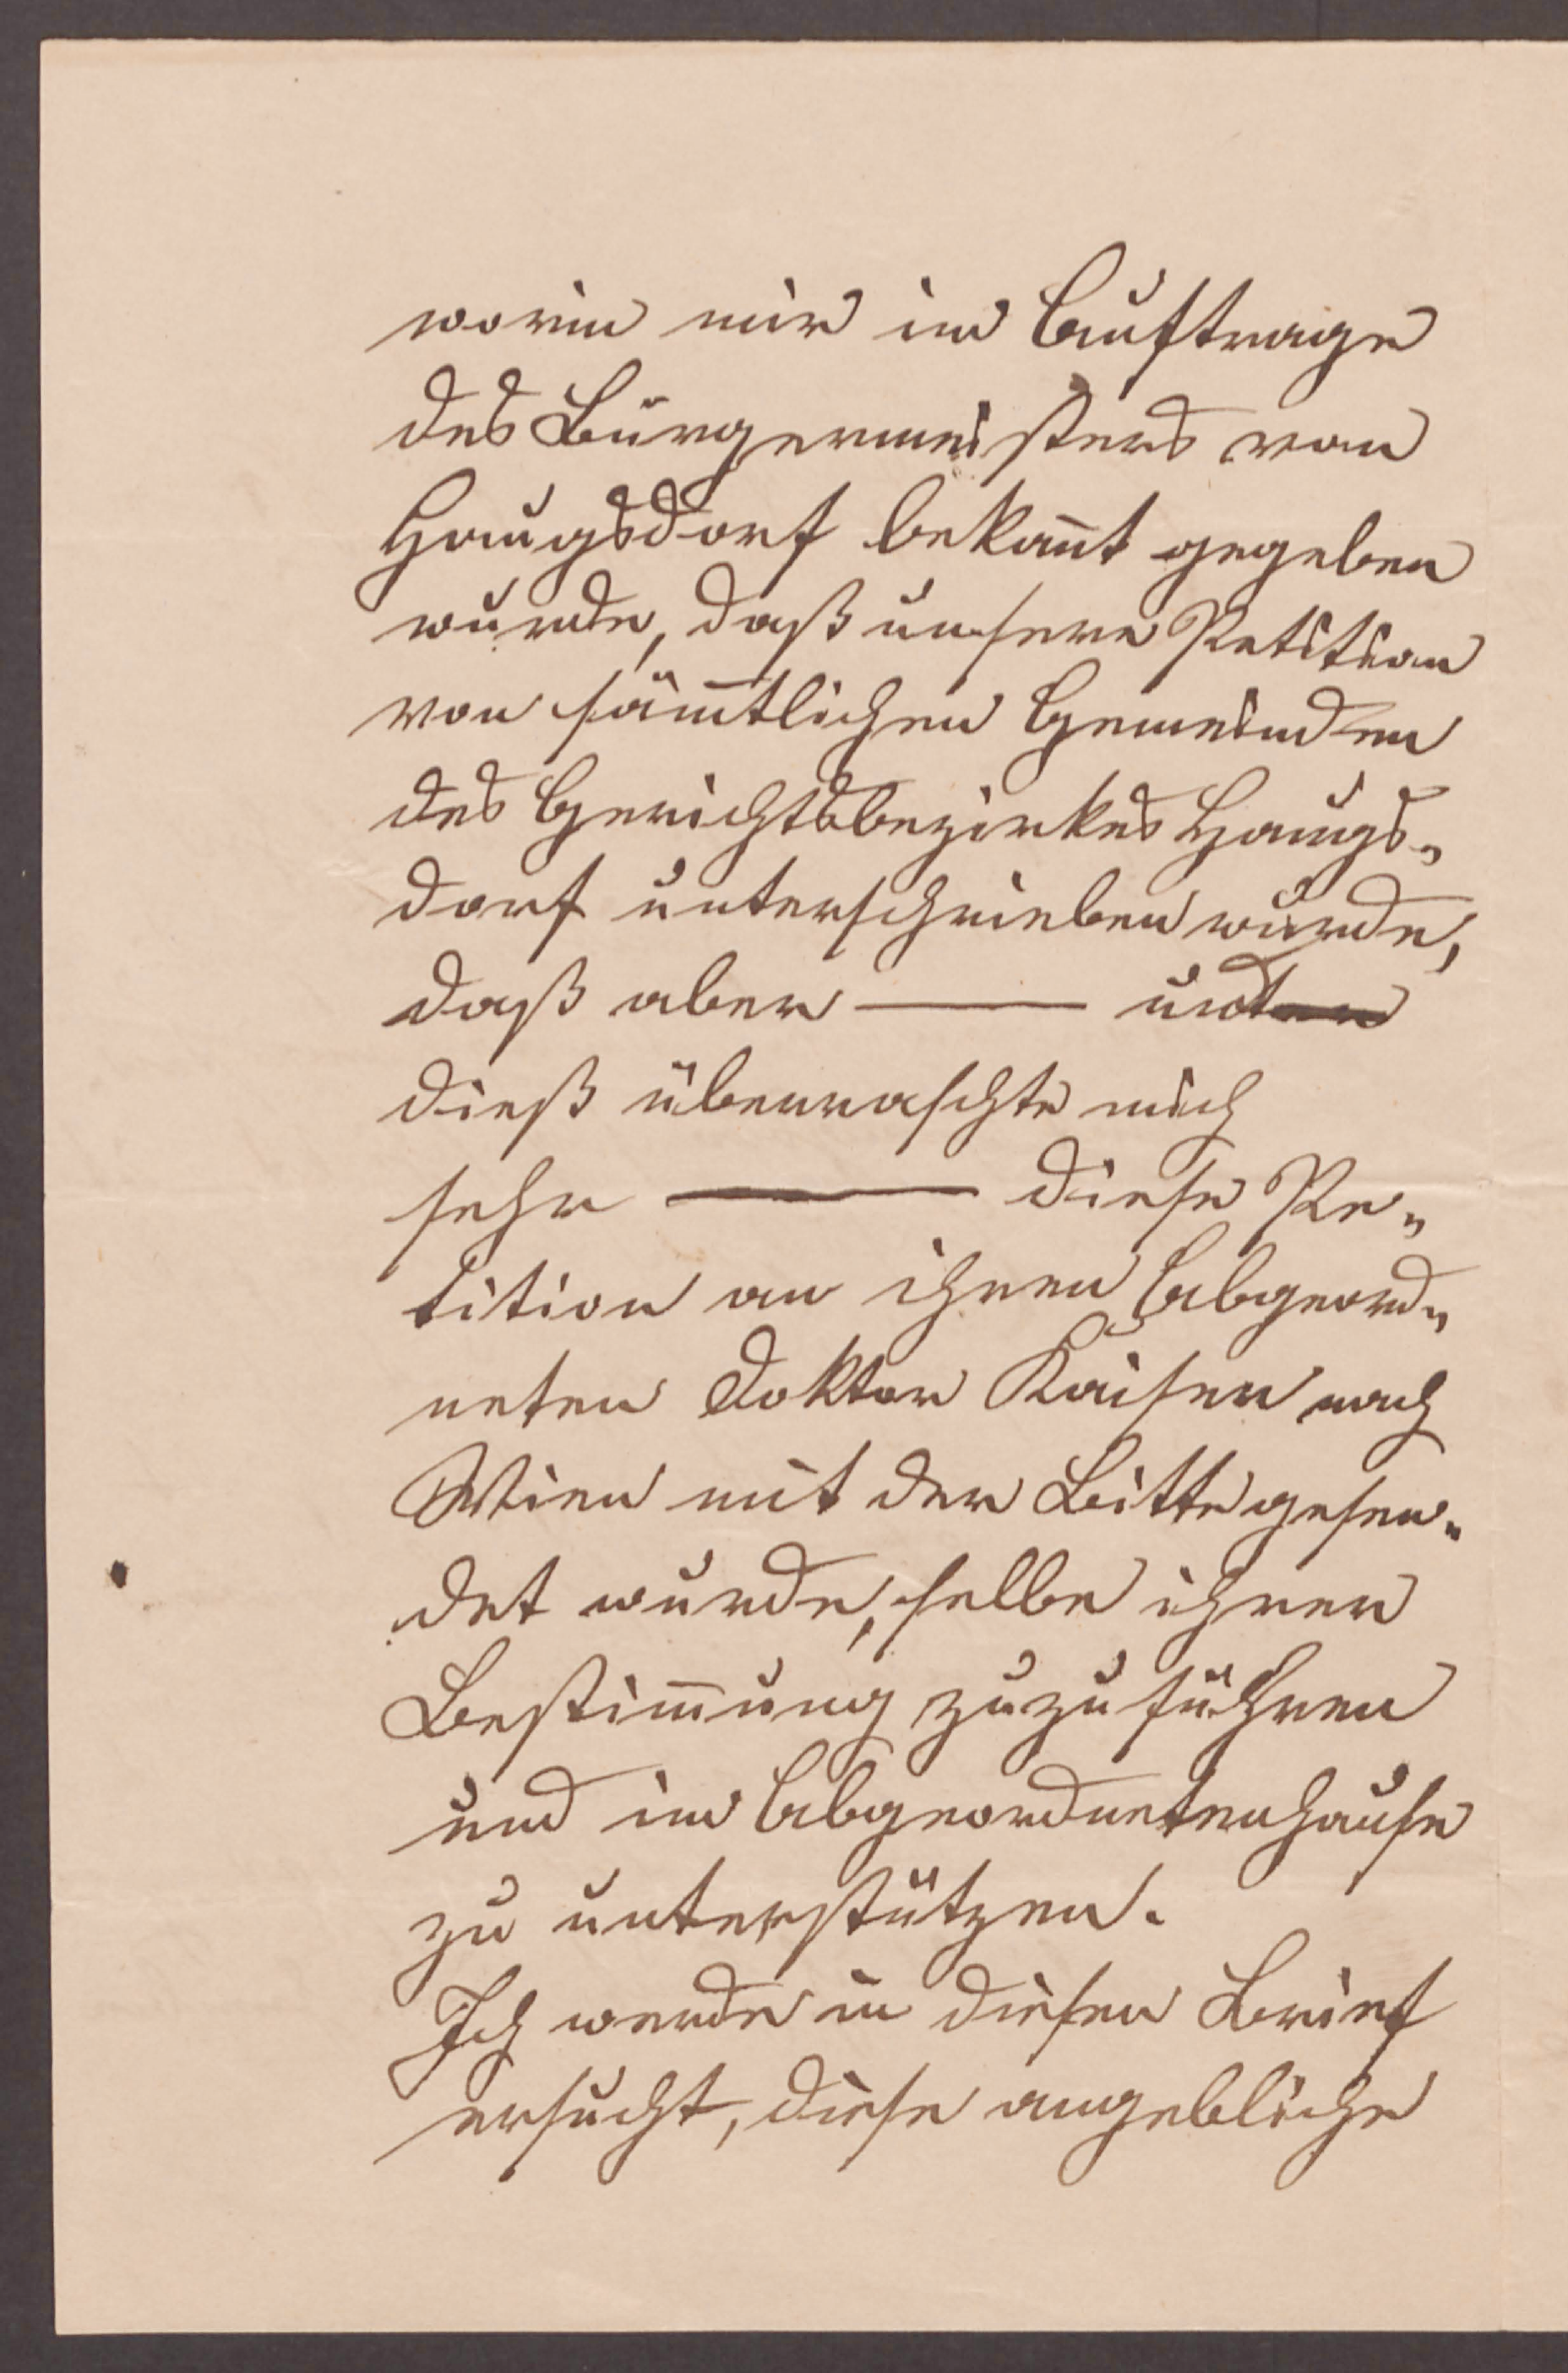 worin mir im Auftrage
des Bürgermeisters von
Haugsdorf bekañt gegeben
wurde, daß unsere Petition
von säm̃tlichen Gemeinden
des Gerichtsbezirkes Haugs„
dorf unterschrieben wurde,
daß aber —— und
dieß überraschte mich
sehr —— diese Pe„
tition an ihren Abgeord„
neten Doktor Kaiser nach
Wien mit der Bitte gesen„
det wurde, selbe ihrer
Bestim̃ung zuzuführen
und im Abgeordnetenhause
zu unterstützen.
Ich werde in diesen Brief
ersucht, diese angebliche